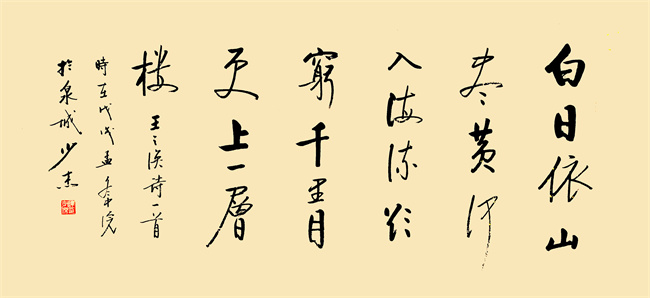 白日依山
尽黄河
入海流欲
窮千里目
更上一層
楼 王之涣诗一首
時在戊戌孟
於泉城少杰